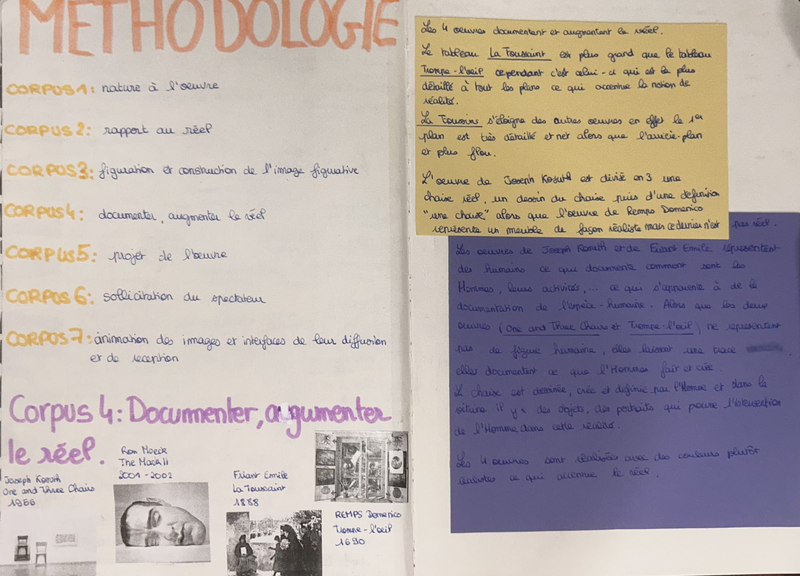 METHODOLOGIE
CORPUS 1: nature à l'œuvre
CORPUS 2: rapport au réel
CORPUS 3: figuration et construction de l'image figurative
CORPUS 4: documenter, augmenter le réel
CORPUS 5: projet de l'œuvre
CORPUS 6: sollicitation du spectateur
CORPUS 7: animation des images et interfaces de leur diffusion
et de reception
Corpus 4: Documenter, augumenter
le réel.
Joseph Kosuth
One and Three Chairs
1966
Ron Mueck
The Mask II
2001-2002
Friant Emile
La Toussaint
1888
REMPS Domenico
Trompe-l'œil
1690
Les 4 œuvres documentent et augmentent le réel.
Le tableau La Toussaint est plus grand que le tableau
Trompe-l'œil cependant c'est celui-ci qui est la plus
détaillé à tout les plans ce qui accentue la notion de
réalité.
La Toussaint s'éloigne des autres œuvres en effet le 1er
plan est très détaillé et net alors que l'arrière-plan
et plus flou.
L'œuvre de Joseph Kosuth est divisé en 3 une
chaise réel, un dessin du chaise puis d'une definition
"une chaise" alors que l'œuvre de Remps Domenico
représente un meuble de façon réaliste mais ce dernier n'est
pas réel.
Les œuvres de Joseph Kosuth et de Friant Emile représentent
des humains ce que documente comment sont les
Hommes, leurs activités,... ce qui s'apparente à de la
documentation de l'espèce humaine. Alors que les deux
œuvres (One and Three Chairs et Trompe-l'œil) ne représentant
pas de figure humaine, elles laissent une trace
elles documentent ce que l'Hommes fait et crée.
La chaise est dessinée, crée et définie par l'Homme et dans la
il y a des objets, des portraits qui prouve l'intervention
de l'Homme dans cette réalité.
Les 4 œuvres sont réalisées avec des couleurs plutôt
réalistes ce qui accentue le réel.